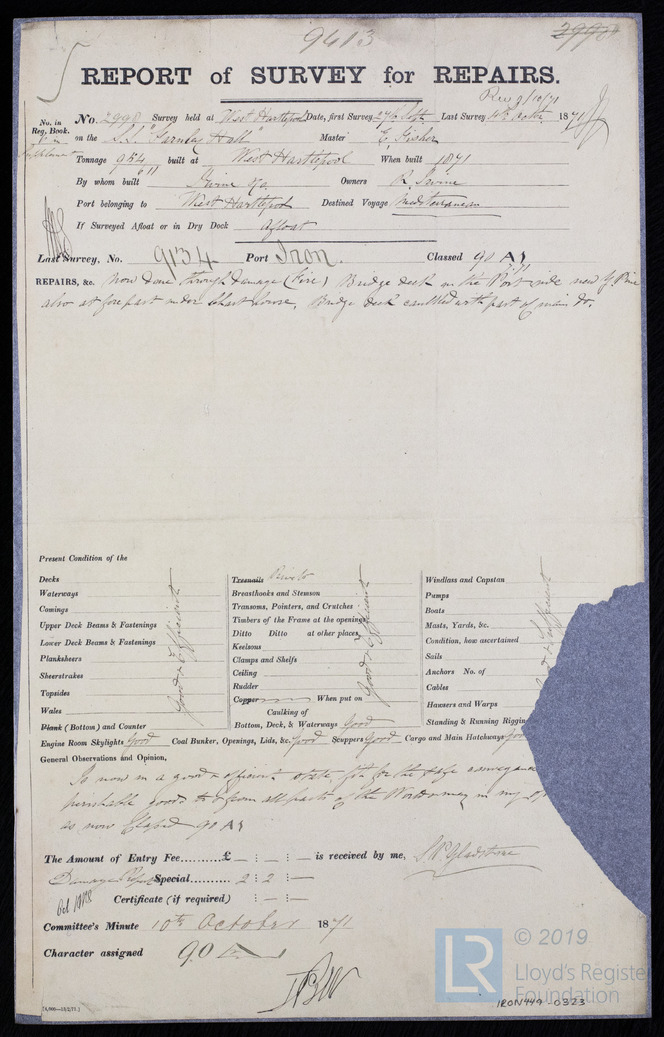 9413
2998
REPORT of SURVEY for REPAIRS.
Rec 9/10/71
No. in Reg. Book.
No. 2998 Survey held at West Hartlepool Date, first Survey 27th Sept. Last Survey 4th Octbr 1871
on the S.S. "Garnby Hall" Master E. Fisher
Supplement
Tonnage 954 built at West Hartlepool When built 1871
611
By whom built Irvine & Co. Owners R. Irvine
Port belonging to West Hartlepool Destined Voyage Mediterranean
If Surveyed Afloat or in Dry Dock Afloat
Last Survey, No. 9134 Port Iron. Classed 90 A1
7.71
REPAIRS, &c. Now done through damage (Fire) Bridge deck on the Port side new Y. Pine
also at fore part under Chart house. Bridge deck caulked with part of main do.
Present Condition of the
Decks
Waterways
Comings
Upper Deck Beams & Fastenings
Lower Deck Beams & Fastenings
Planksheers
Sheerstrakes
Topsides
Wales
Plank (Bottom) and Counter
Good & Efficient
Treenails Rivets
Breasthooks and Stemson
Transoms, Pointers, and Crutches
Timbers of the Frame at the openings
Ditto Ditto at other places
Keelsons
Clamps and Shelfs
Ceiling
Rudder
Copper When put on
Caulking of
Bottom, Deck, & Waterways Good
Good & Efficient
Windlass and Capstan
Pumps
Boats
Masts, Yards, &c.
Condition, how ascertained
Sails
Anchors No. of
Cables
Hawsers and Warps
Standing & Running Riggin
Good & Efficient
Engine Room Skylights Good Coal Bunker, Openings, Lids, &c. Good Scuppers Good Cargo and Main Hatchways Good
General Observations and Opinion,
Is now in a good & efficient state, fit for the safe conveyance
perishable goods to & from all parts of the World & may in my
as now Classed 90 A1
The Amount of Entry Fee..........£ — : — : — is received by me, W. Gladstone
Damage Report Special....... 2 : 2 : —
Certificate (if required) : — : —
Committee's Minute 10th October 1871
Character assigned 90 A
[4,000—13/2/71]
LR
© 2019
Lloyd's Register
Foundation
IRON449-0323